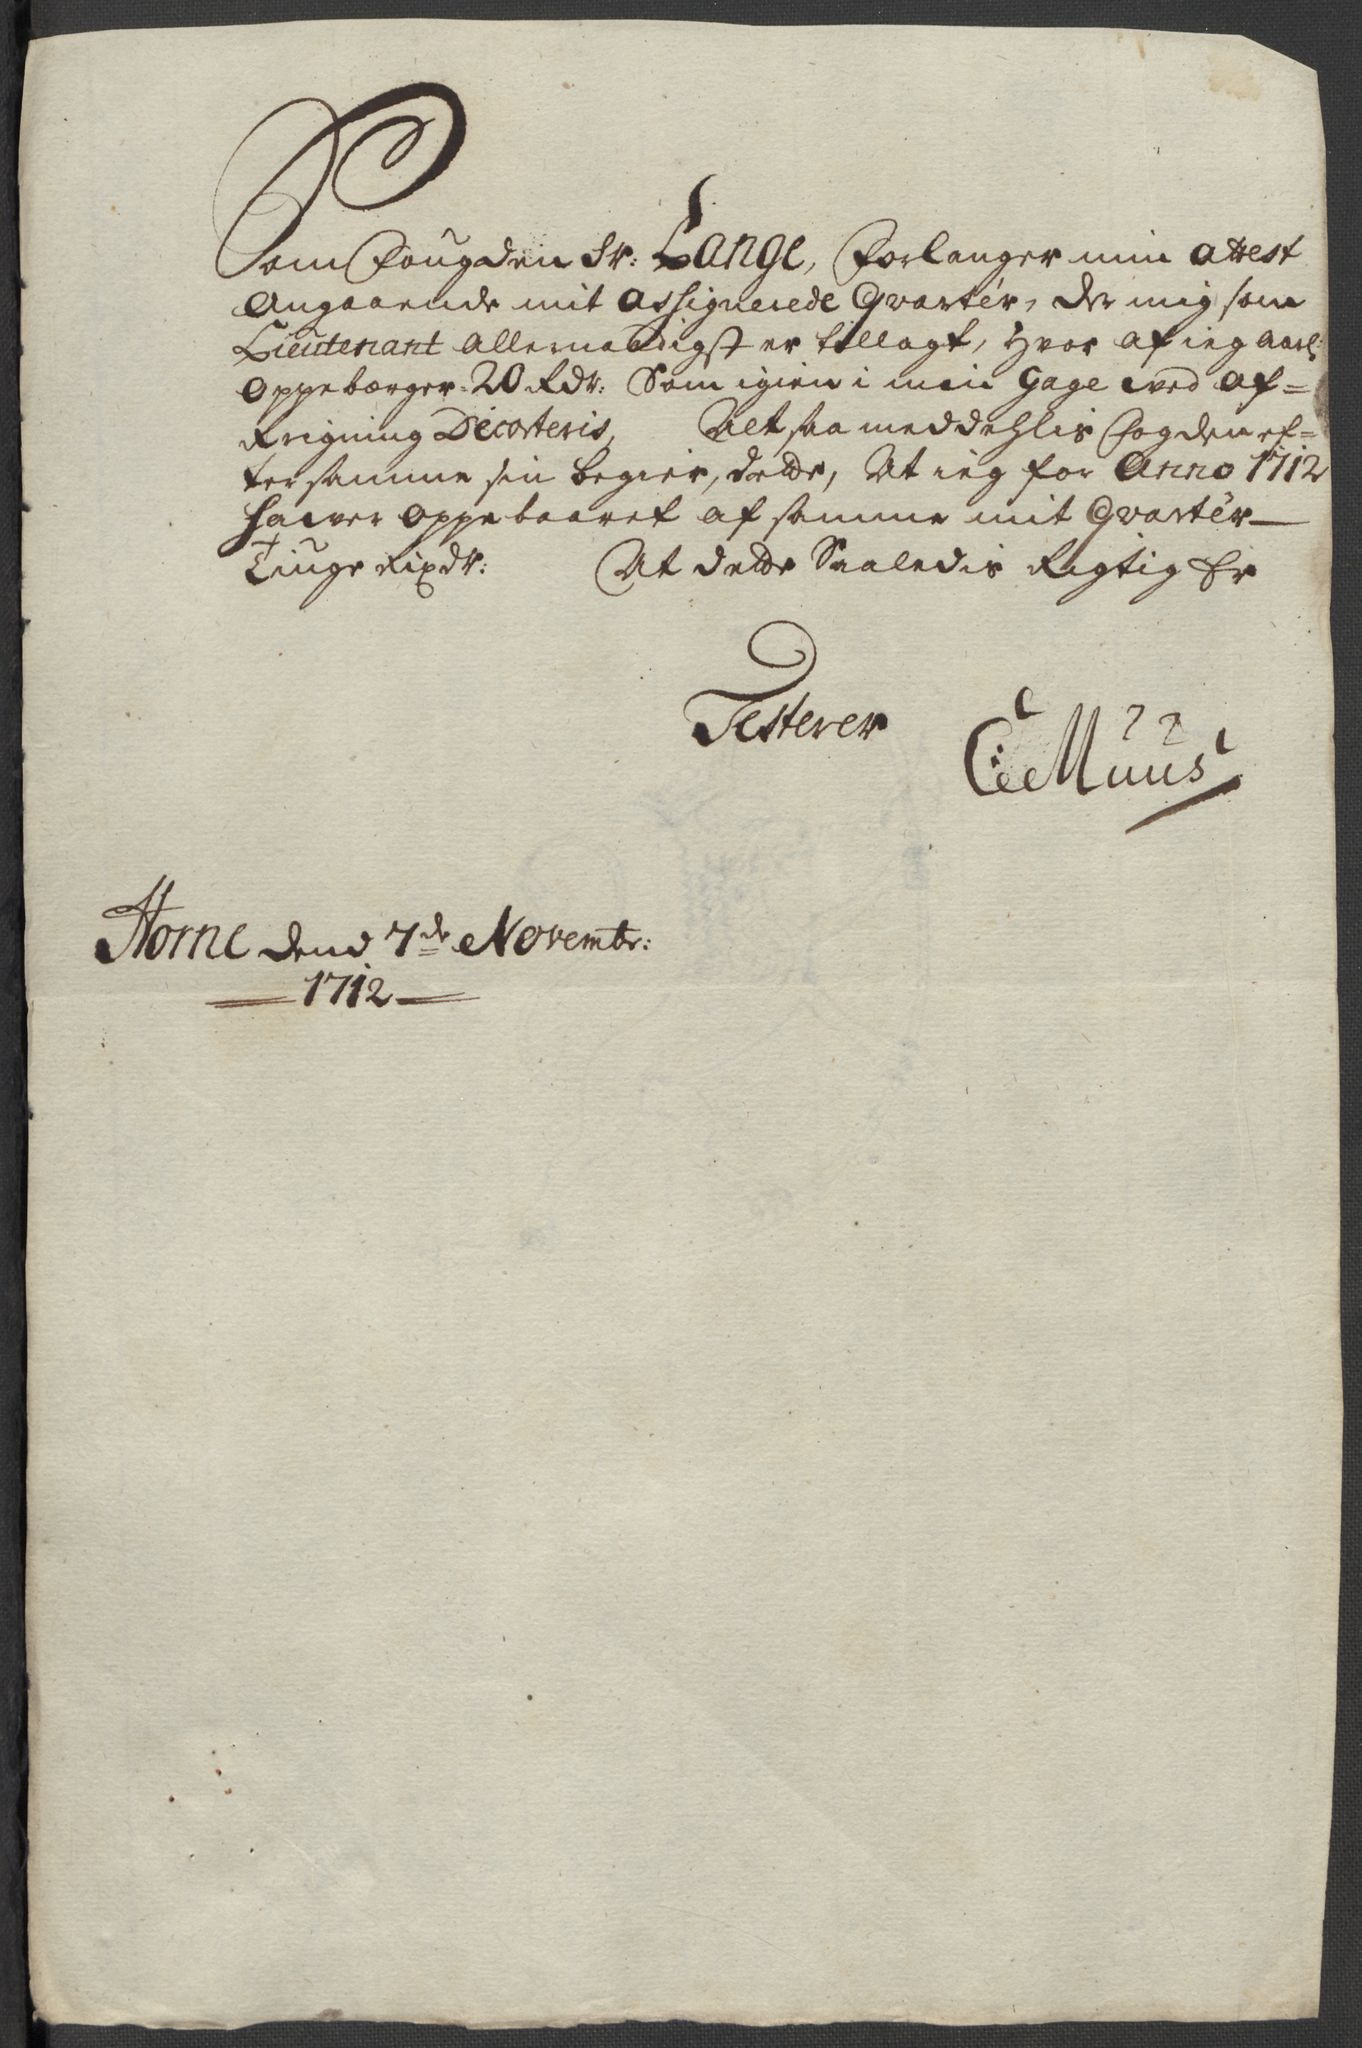 Som Fougden Sr: Lange, Forlanger min attest
Angaaende mit assignerede Qvartér, der mig som
Lieutenant allernaadigst er tillagt, Hvor af ieg aarl:
oppebærger 20 Rdr: Som igien i min Gage ved af=
Reigning Decorteris, Alt saa meddehlis Fogden ef=
ter samme sin begier, dette, At ieg for Anno 1712
hafver oppebaaret af samme mit Qvartér
Tiuge Rixdr: At dette Saaledis Rigtig Er
Testerer
CMuus
Horne dend 7de Novembr:
1712